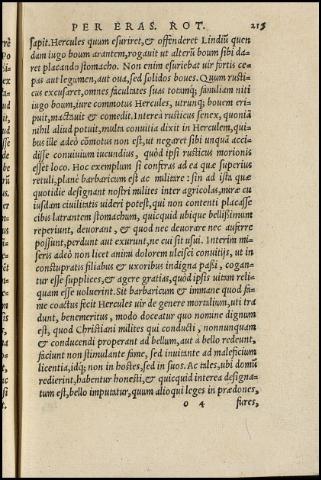 PER ERAS. ROT. 215
sapit. Hercules quum esuriret, & offenderet Lindiũ quen
dam iugo boum arantem, rogauit ut alterũ boum sibi da=
ret placando stomacho. Non enim esuriebat uir fortis ce=
pas aut legumen, aut oua, sed solidos boues. Quum rusti=
cus excusaret, omnes facultates suas totamq; familiam niti
iugo boum, iure commotus Hercules, utrunq; bouem eri=
puit, mactauit & comedit. Interea rusticus senex, quoniã
nihil aliud potuit, multa conuitia dixit in Herculem, qui=
bus ille adeò cõmotus non est, ut negaret sibi unquã acci=
disse conuiuium iucundius, quòd ipsi rusticus morionis
esset loco. Hoc exemplum si conferas ad ea quæ superius
retuli, planè barbaricum est ac militare: sin ad ista quæ
quotidie designant nostri milites inter agricolas, miræ cu
iusdam ciuilitatis uideri potest, qui non contenti placasse
cibus latrantem stomachum, quicquid ubique bellissimum
reperiunt, deuorant, & quod nec deuorare nec auferre
possunt, perdunt aut exurunt, ne cui sit usui. Interim mi=
seris adeò non licet animi dolorem ulcisci conuitijs, ut in
constupratis filiabus & uxoribus indigna passi, cogan=
tur esse supplices, & agere gratias, quòd ipsis uitam reli=
quam esse uoluerint. Sit barbaricum & immane quod fa=
me coactus fecit Hercules uir de genere mortalium, uti tra
dunt, benemeritus, modo doceatur quo nomine dignum
est, quod Christiani milites qui conducti, nonnunquam
& conducendi properant ad bellum, aut à bello redeunt,
faciunt non stimulante fame, sed inuitante ad maleficium
licentia, idq; non in hostes, sed in suos. Ac tales, ubi domũ
redierint, habentur honesti, & quicquid interea designa=
tum est, bello imputatur, quum alioqui leges in prædones,
o 4 fures,